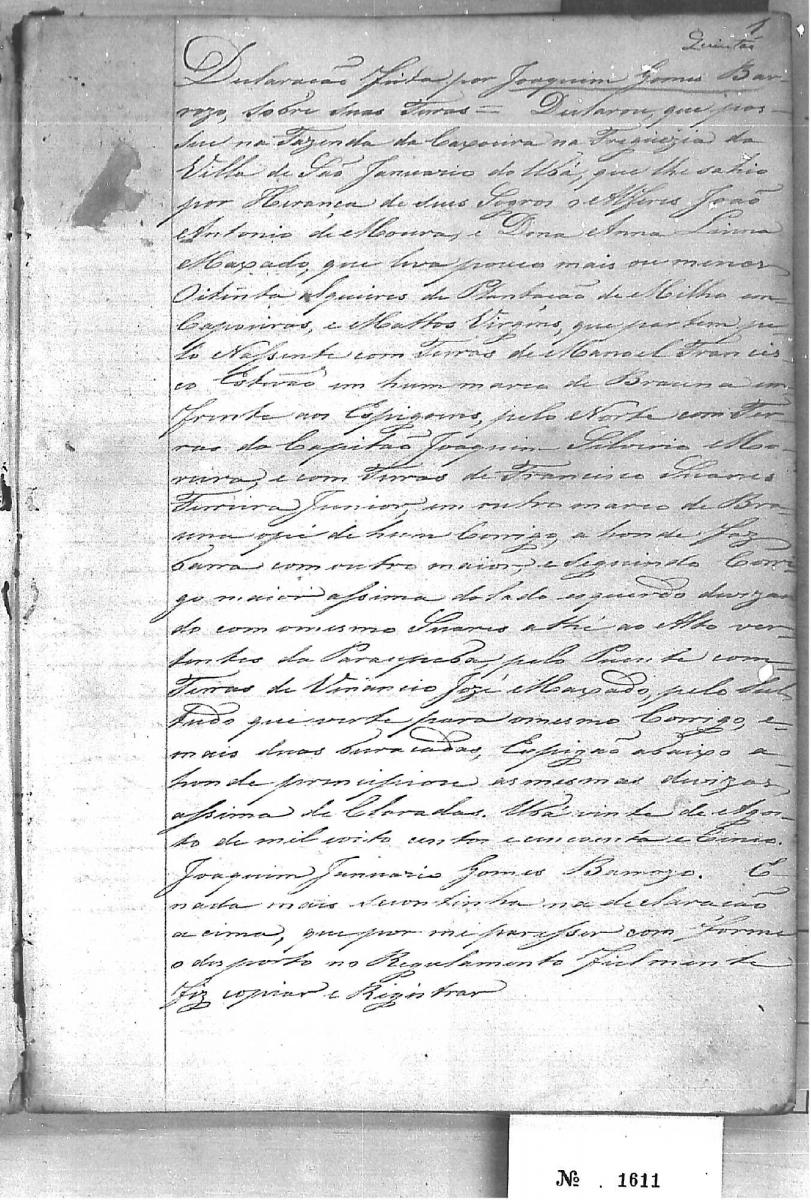 1
Declaração feita por Joaquim Gomes Bar-
rozo, sobre suas Terras = Declarou, que pos-
sue na Fazenda da Caxoeira na Freguezia da
Villa de São Januario do Ubá, que lhe sahio
por Herança de seus Sogros o Alferes João
Antonio de Moura, e Dona Anna
Maxado, que leva pouco mais ou menos
Oitenta Alqueires de Plantação de Milho em
Capoeiras, e Mattos Virgens, que partem pe-
lo Nassente com Terras de Manoel Francis
co Estevão em hum marco de Brauna em
frente aos Espigoens, pelo Norte com Ter-
ras do Capitão Joaquim Silverio Mo-
reira, e com Terras de Francisco Soares
Ferreira Junior, em outro marco de Bra-
una ao pé de hum Corrigo, a honde faz
barra com outro maior, e seguindo Corri-
go maior assima do lado esquerdo devizan
do com o mesmo Soares athé ao Alto ver-
tentes da Paraopeba, pelo Puente com
Terras de Vinancio Jozé Maxado, pelo
tudo que verte para o mesmo Corrigo, e
mais duas buracadas, Espigão abaixo a-
honde principiou as mesmas devizas
assima de Claradas. Ubá vinte de Agos-
to de mil e oito centos e cincoenta e Cinco.
Joaquim Januario Gomes Barrozo. E
nada mais se continha na declaração
acima, que por me paresser com forme
o disposto no Regulamento fielmente
fiz copiar e Registrar
Nº . 1611